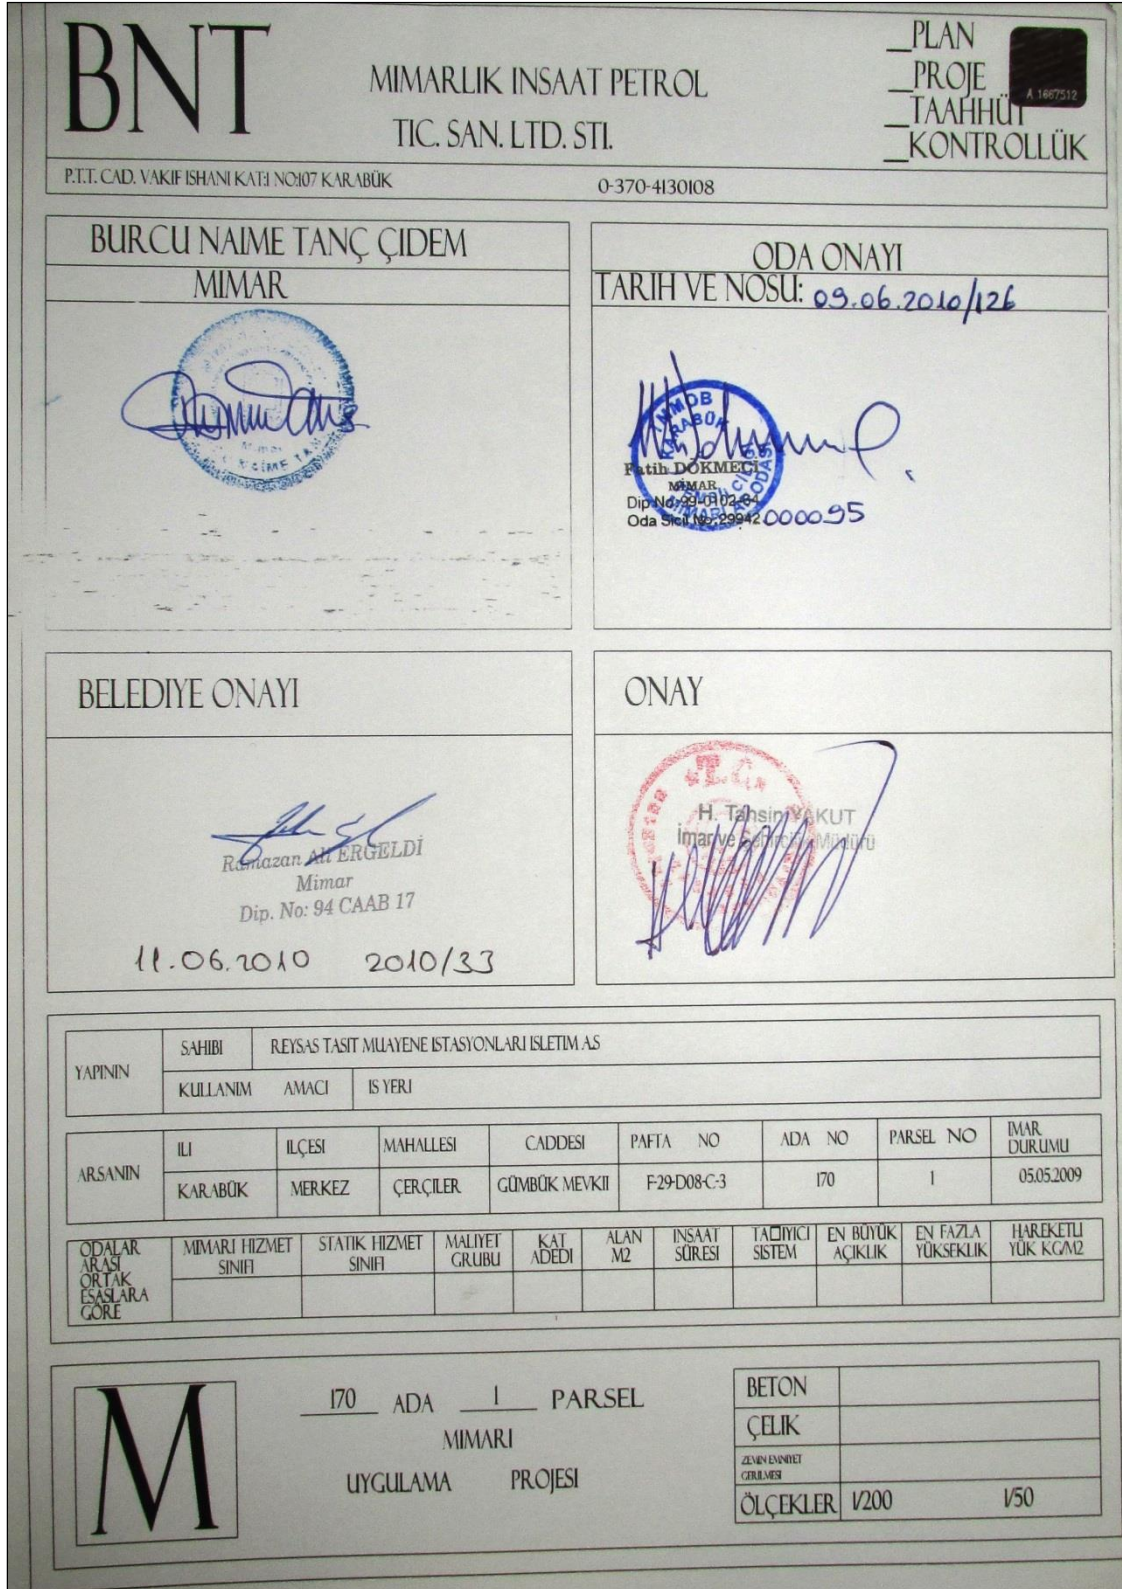 BNT
MIMARLIK INSAAT PETROL
TIC. SAN. LTD. STI.
_PLAN
_PROJE
_TAAHHÜT
_KONTROLLÜK
A.1667512
P.T.T. CAD. VAKIF ISHANI KAT:1 NO:107 KARABÜK
0-370-4130108
BURCU NAIME TANÇ ÇIDEM
MIMAR
ODA ONAYI
TARIH VE NOSU: 09.06.2010/126
TMMOB
KARABÜK
MİMARLAR ODASI
Fatih DÖKMECİ
MİMAR
Dip.No:99-0102-84
Oda Sicil No:29942 000095
BELEDIYE ONAYI
Ramazan Ali ERGELDİ
Mimar
Dip. No: 94 CAAB 17
11.06.2010 2010/33
ONAY
T.C.
H. Tahsin YAKUT
İmar ve Şehircilik Müdürü
YAPININ
SAHIBI REYSAS TASIT MUAYENE ISTASYONLARI ISLETIM AS
KULLANIM AMACI IS YERI
ARSANIN
ILI ILÇESI MAHALLESI CADDESI PAFTA NO ADA NO PARSEL NO IMAR DURUMU
KARABÜK MERKEZ ÇERÇILER GÜMBÜK MEVKII F-29-D08-C-3 170 1 05.05.2009
ODALAR ARASI ORTAK ESASLARA GÖRE
MIMARI HIZMET SINIFI STATIK HIZMET SINIFI MALIYET GRUBU KAT ADEDI ALAN M2 INSAAT SÜRESI TA□IYICI SISTEM EN BÜYÜK AÇIKLIK EN FAZLA YÜKSEKLIK HAREKETLI YÜK KG/M2
M
170 ADA 1 PARSEL
MIMARI
UYGULAMA PROJESI
BETON
ÇELIK
ZEMIN EMNIYET GERILMESI
ÖLÇEKLER 1/200 1/50